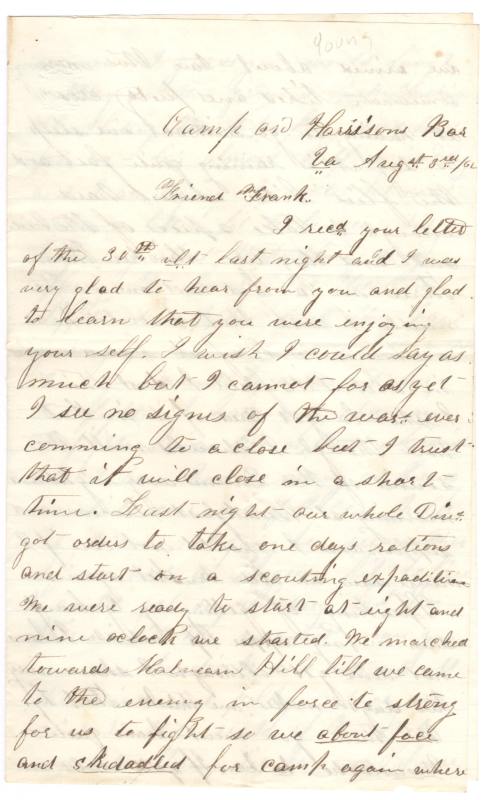 Young
Camp on Harrisons Bar
Va Augst 3rd /62
Friend Frank.
I recd your letter
of the 30th ult last night and I was
very glad to hear from you and glad
to learn that you were enjoying
your self. I wish I could say as
much but I cannot for as yet
I see no signs of the war ever
comming to a close but I trust
that it will close in a short
time. Last night our whole Divn
got orders to take one days rations
and start on a scouting expadition
We were ready to start at eight and
nine oclock we started. We marched
towards Malvearn Hill till we came
to the enemy in force to strong
for us to fight so we about face
and skedadled for camp again where